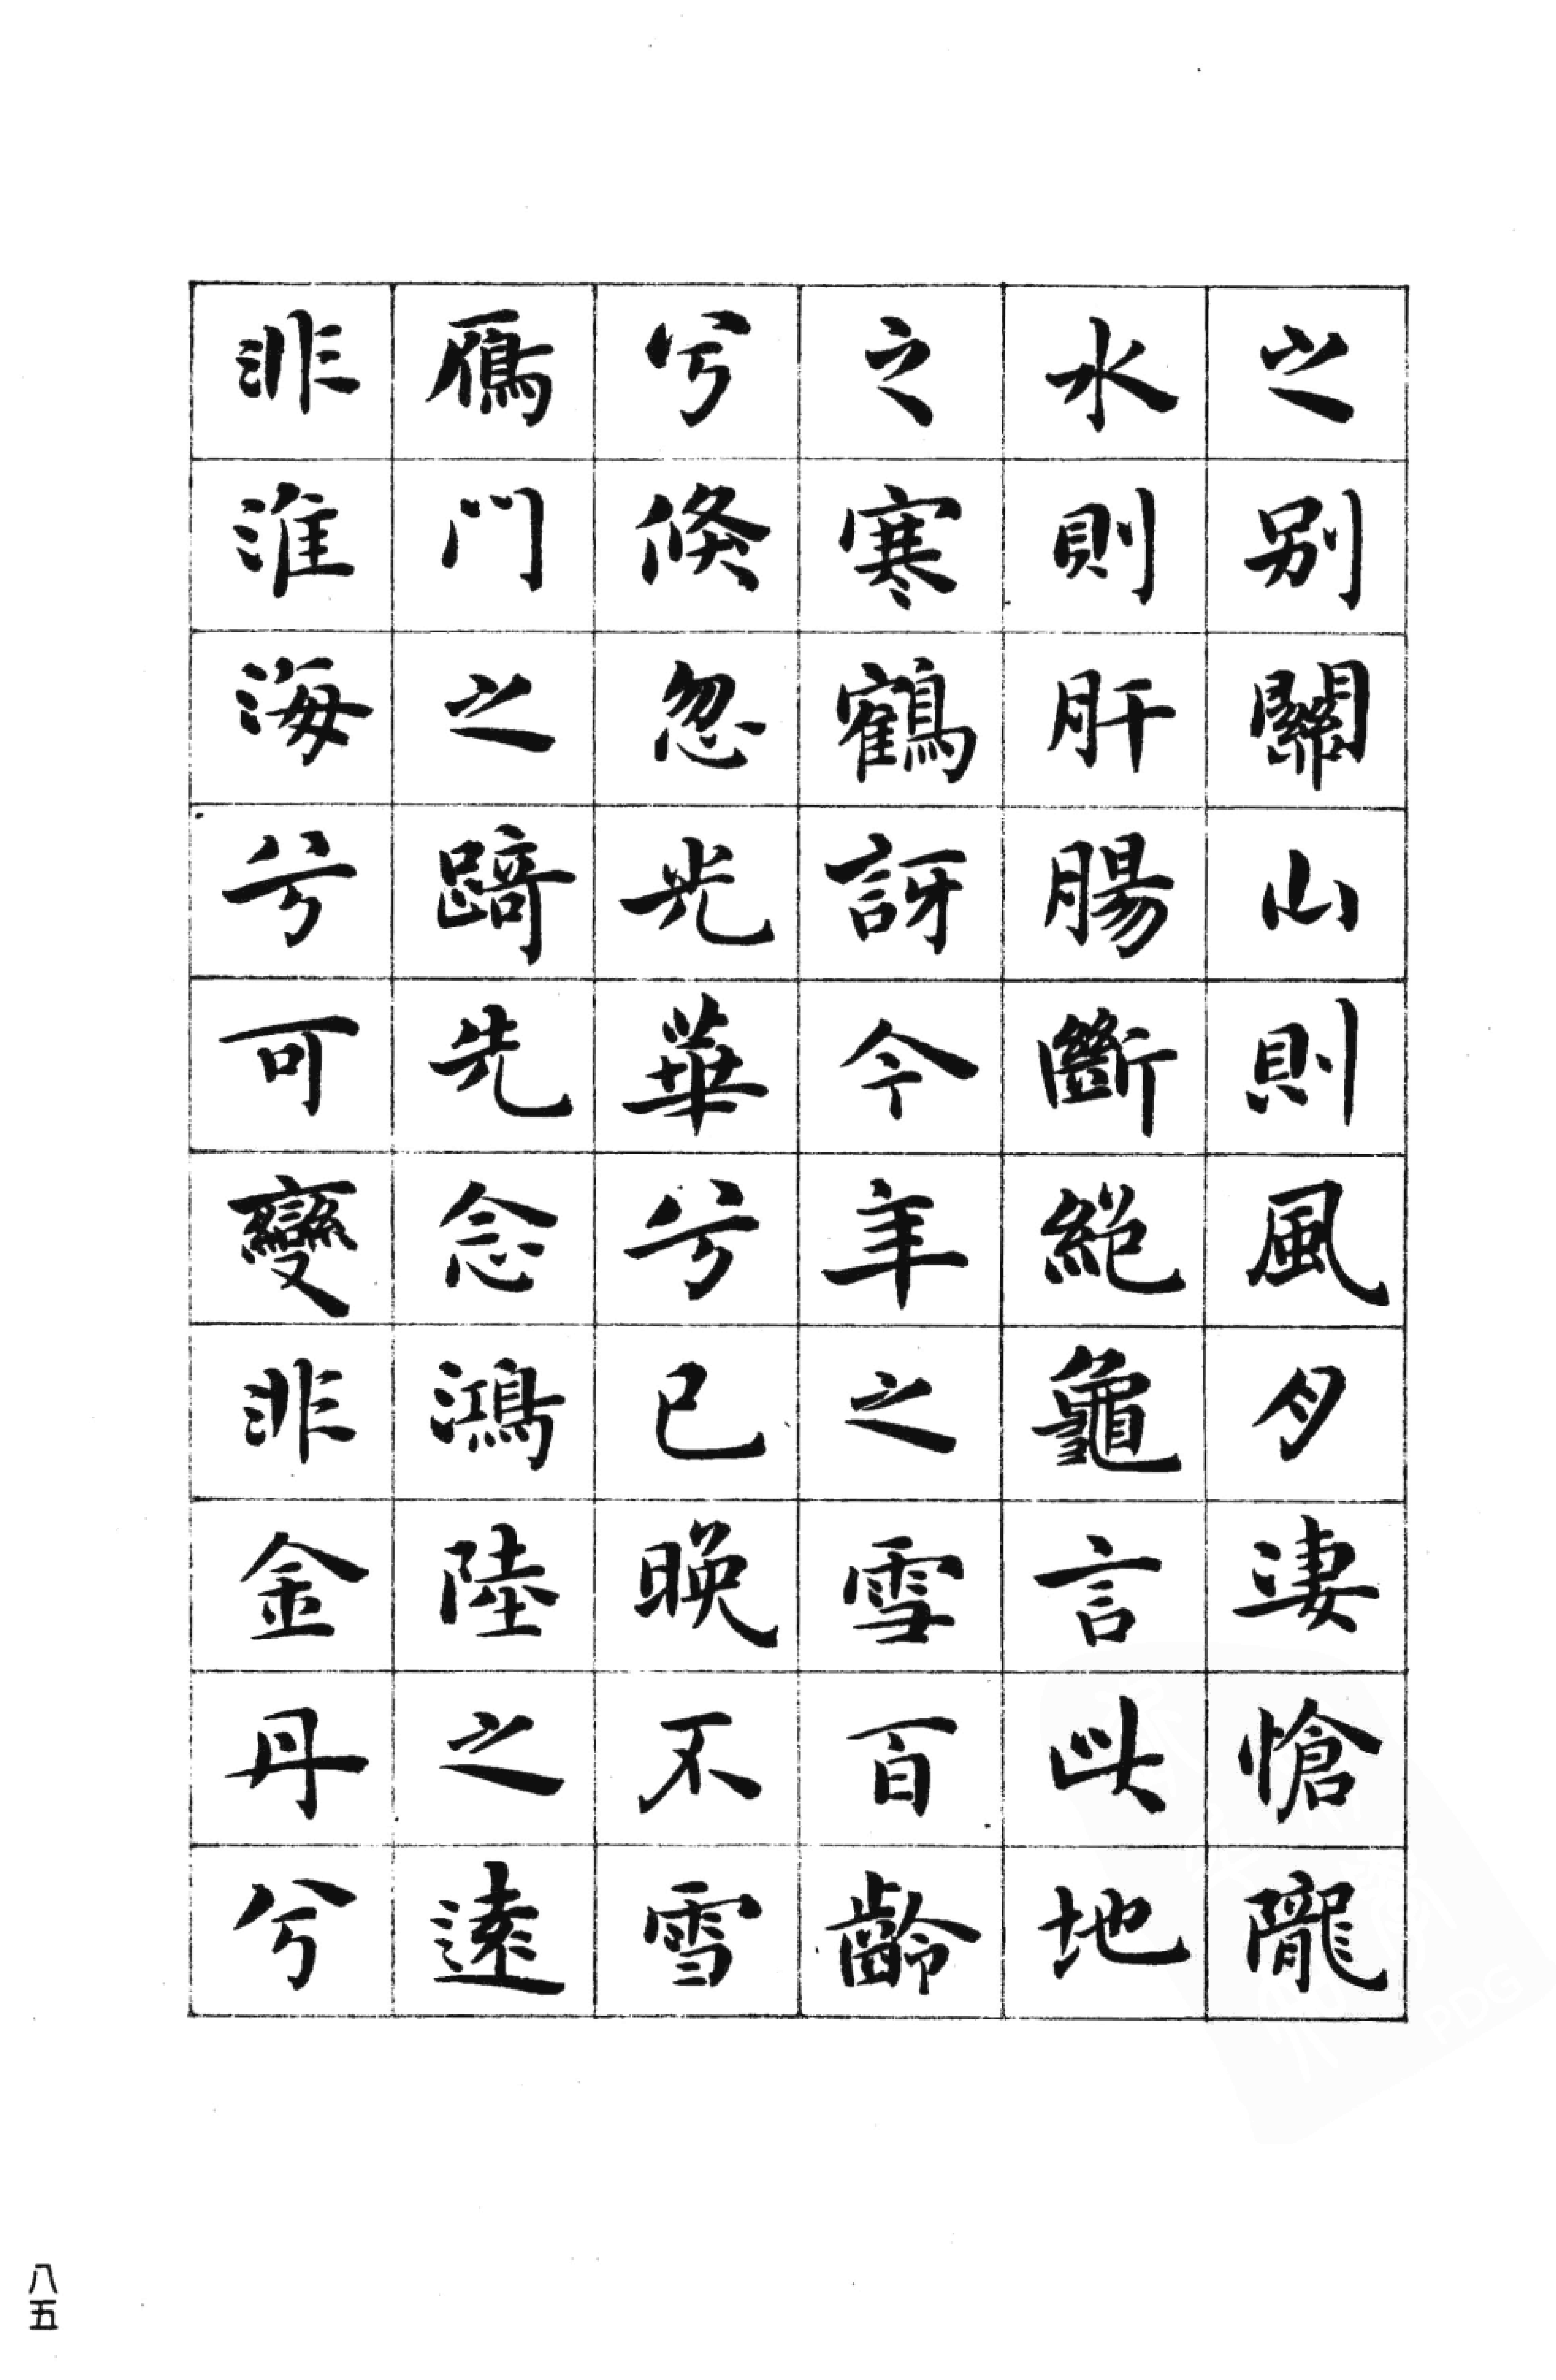 之別關山則風月淒愴隴
水則肝腸斷絕龜言此地
之寒鶴訝今年之雪百齡
兮倏忽光華兮已晚不雪
鴈門之踦先念鴻陸之遠
非淮海兮可變非金丹兮
八五